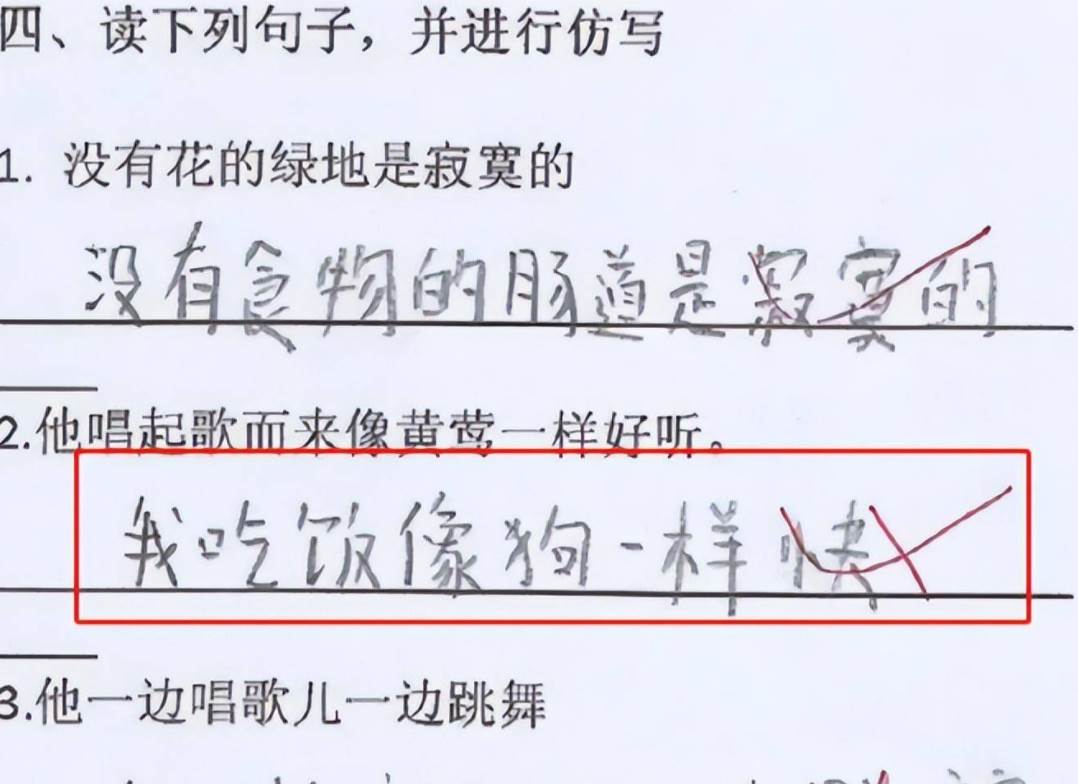 四、读下列句子，并进行仿写
1. 没有花的绿地是寂寞的
没有食物的肠道是寂寞的
2.他唱起歌而来像黄莺一样好听。
我吃饭像狗一样快
3.他一边唱歌儿一边跳舞